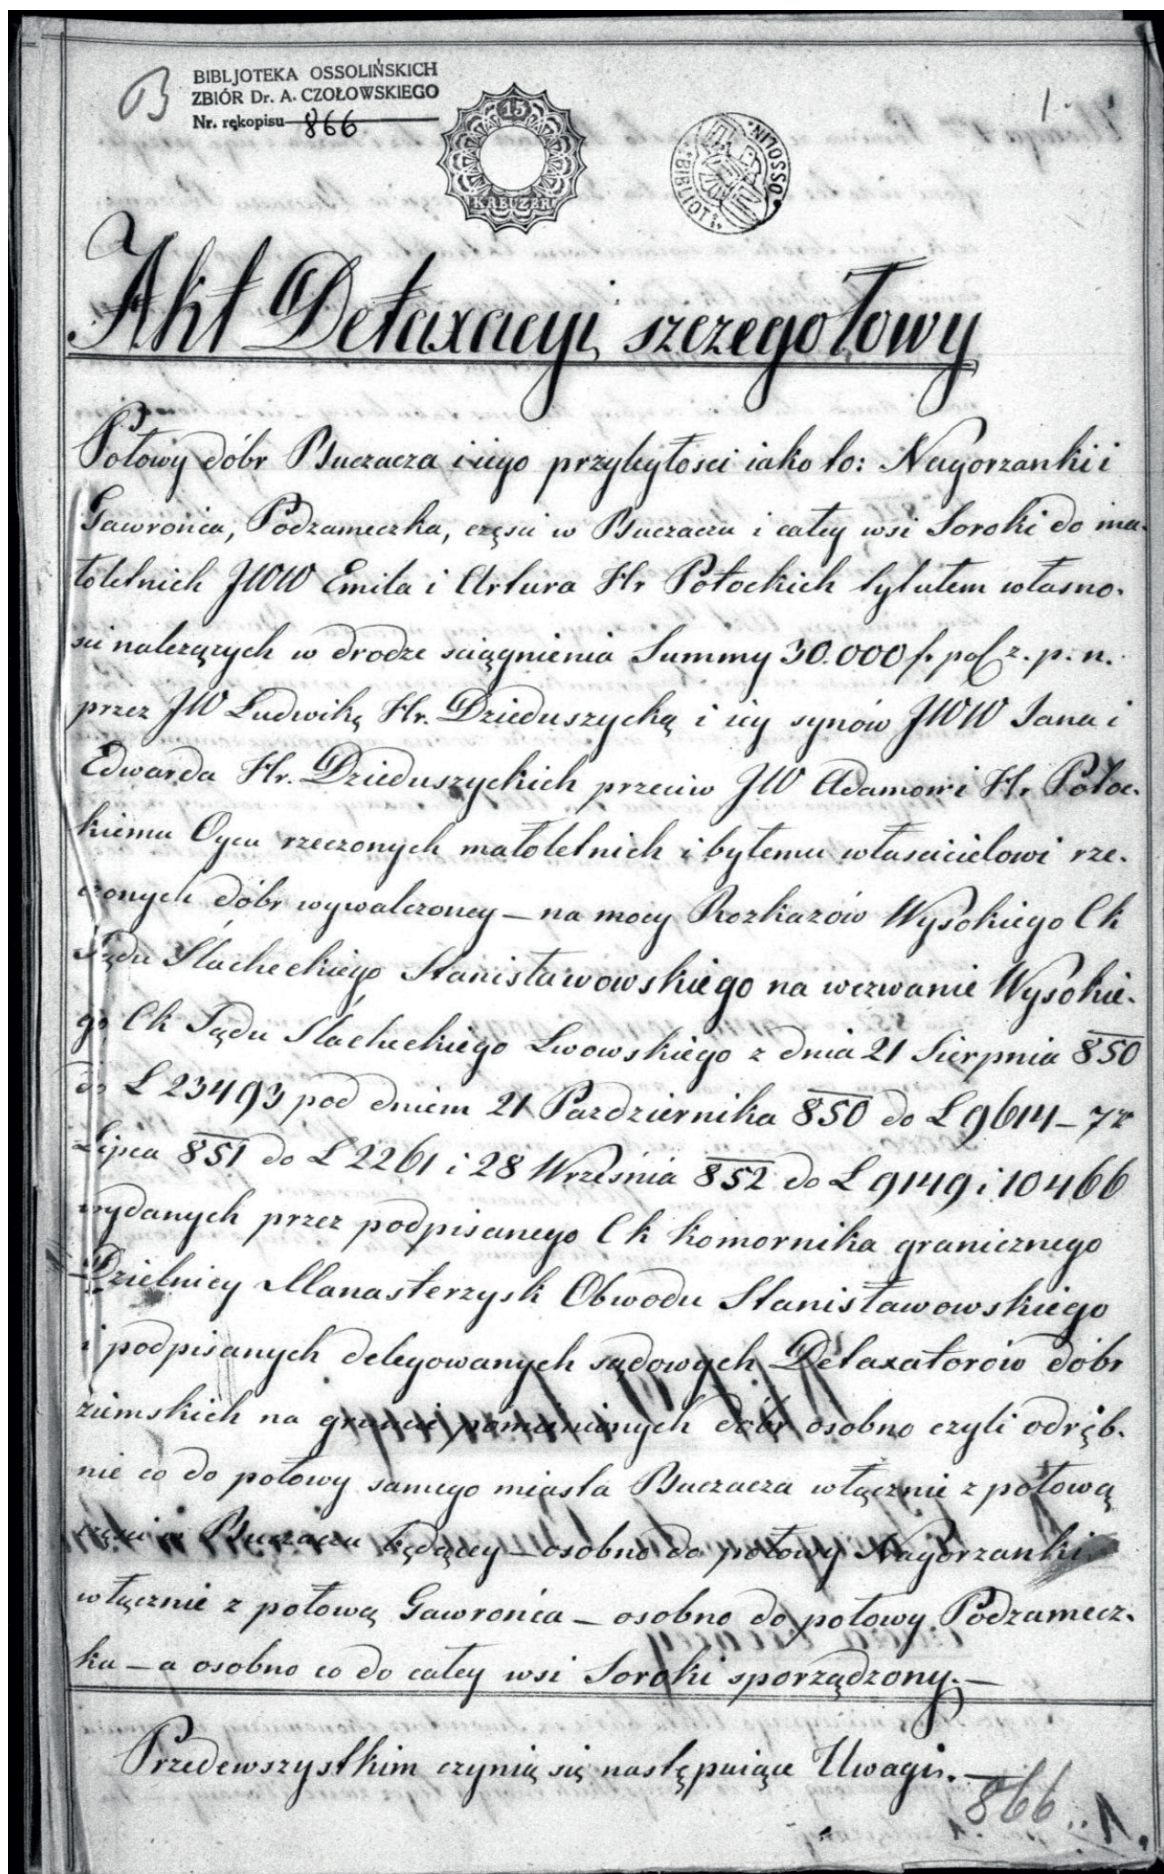 B
BIBLJOTEKA OSSOLIŃSKICH
ZBIÓR Dr. A. CZOŁOWSKIEGO
Nr. rękopisu 866
15
KREUZER
BIBLIOT.
OSSOLIN
1
Akt Detaxacyi szczegołowy
Połowy dóbr Buczacza i iego przyległosci iako to: Nagorzanki i
Gawrońca, Podzameczka, częsci w Buczaczu i całey wsi Soroki do ma-
łoletnich JWW Emila i Artura Hr Potockich tytułem własno-
sci nalezących w drodze sciągnienia Summy 30.000 f. pol z. p. n.
przez JW Ludwikę Hr. Dzieduszycką i iey synów JWW Jana i
Edwarda Hr. Dzieduszyckich przeciw JW Adamowi Hr Potoc-
kiemu Oycu rzeczonych małoletnich i byłemu włascicielowi rze-
czonych dóbr wywalczoney — na mocy Rozkazów Wysokiego Ck
Sądu Slacheckiego Stanisławowskiego na wezwanie Wysokie-
go Ck Sądu Slacheckiego Lwowskiego z dnia 21 Sierpnia 850
do L 23493 pod dniem 21 Pazdziernika 850 do L 9614 — 7z
Lipca 851 do L 2261 i 28 Wrzesnia 852 do L 9149 i 10466
wydanych przez podpisanego Ck Komornika granicznego
Dzielnicy Manasterzysk Obwodu Stanisławowskiego
i podpisanych delegowanych sądowych Detaxatorów dóbr
ziemskich na gruncie pomienionych dóbr osobno czyli odręb-
nie co do połowy samego miasta Buczacza włącznie z połową
częsci w Buczaczu będącey — osobno do połowy Nagorzanki
włącznie z połową Gawrońca — osobno do połowy Podzamecz-
ka — a osobno co do całey wsi Soroki sporządzony. —
Przedewszystkim czynią się następuiące Uwagi. —
866
1.